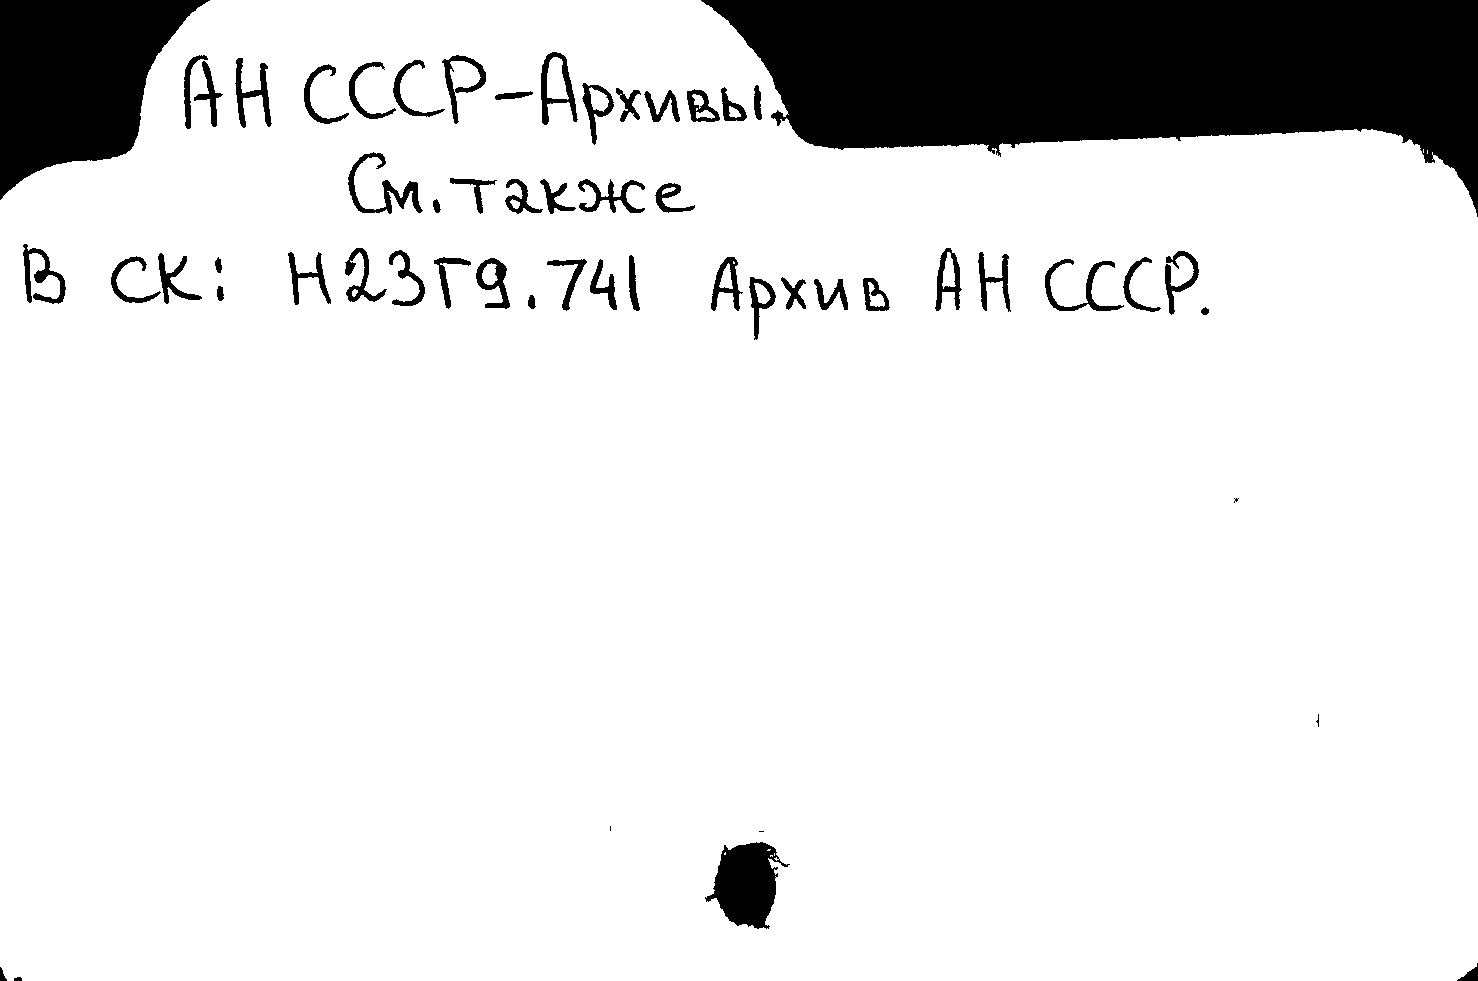 АН СССР-Архивы.
См. также
В СК: Н23Г9.741 Архив АН СССР.